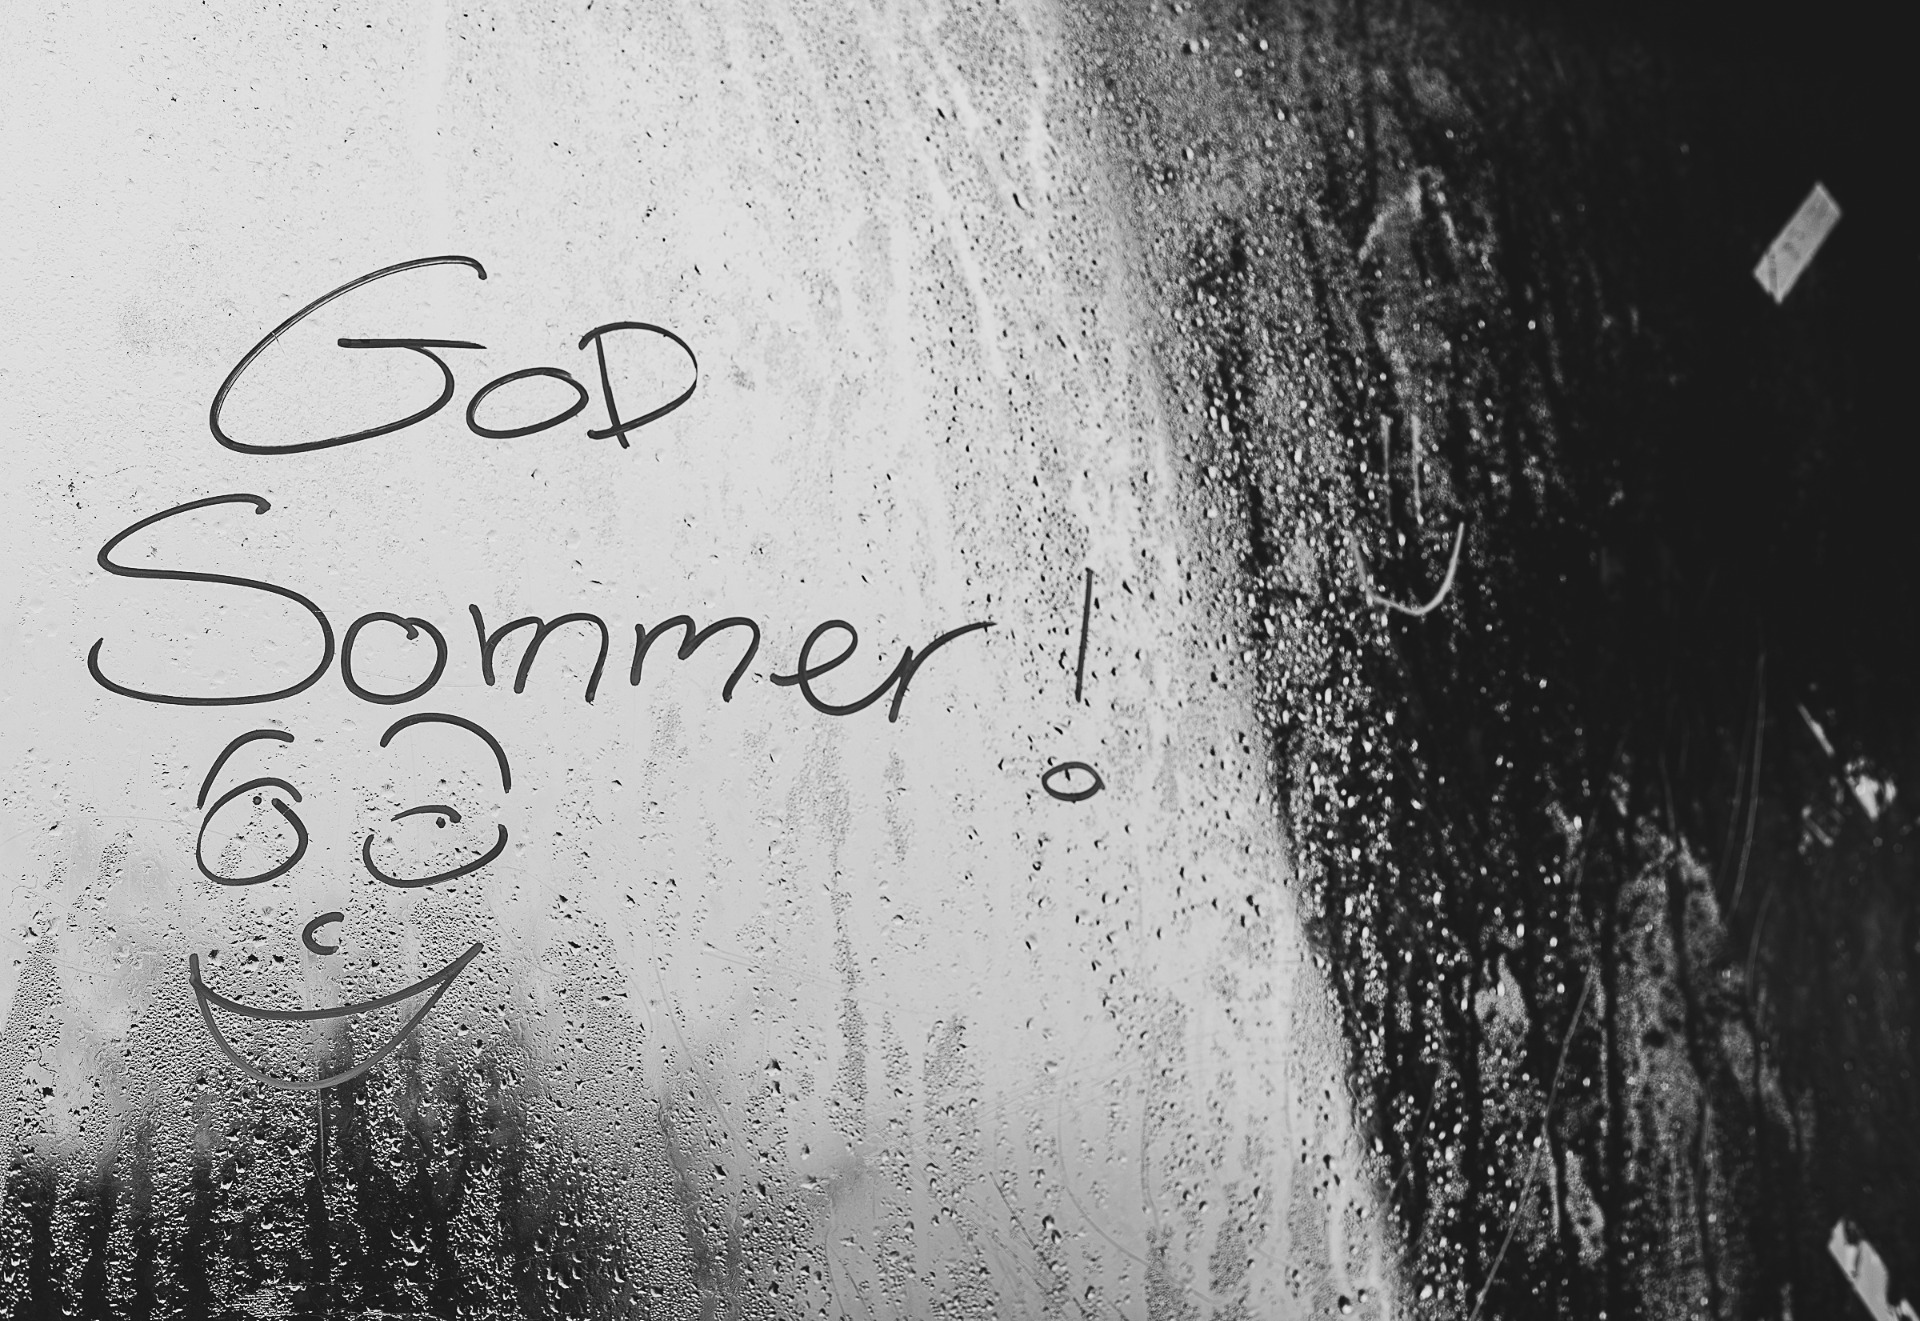 GoD
Sommer!